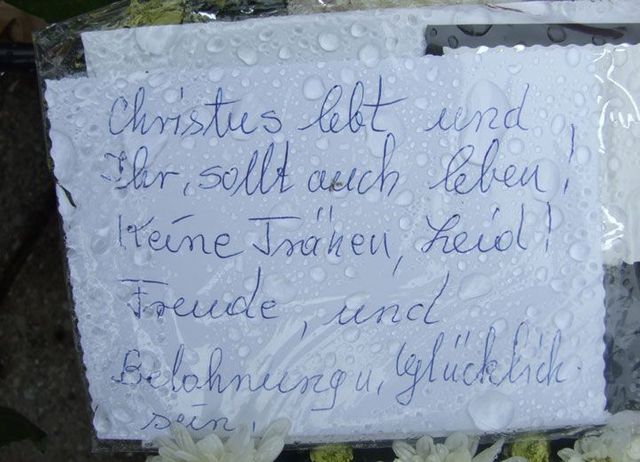 Christus lebt und
Ihr, sollt auch leben!
Keine Tränen, Leid!
Freude, und
Belohnung u, Glücklich.
sein.